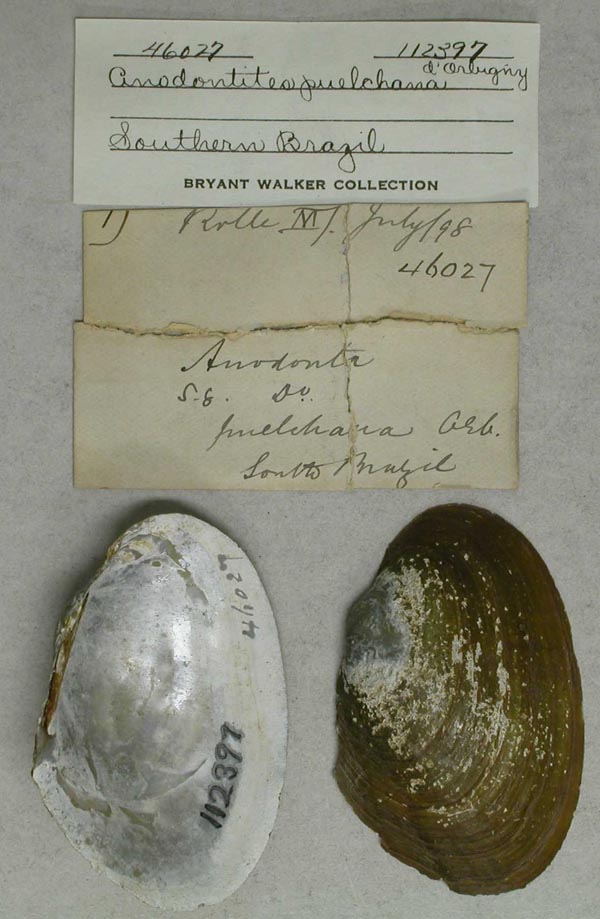 46027 112397
Anodontites puelchana d'Orbigny
Southern Brazil
BRYANT WALKER COLLECTION
1) Rolle VI/. July/98
46027
Anodonta
S.g. Do.
puelchana Orb.
South Brazil
46027
112397